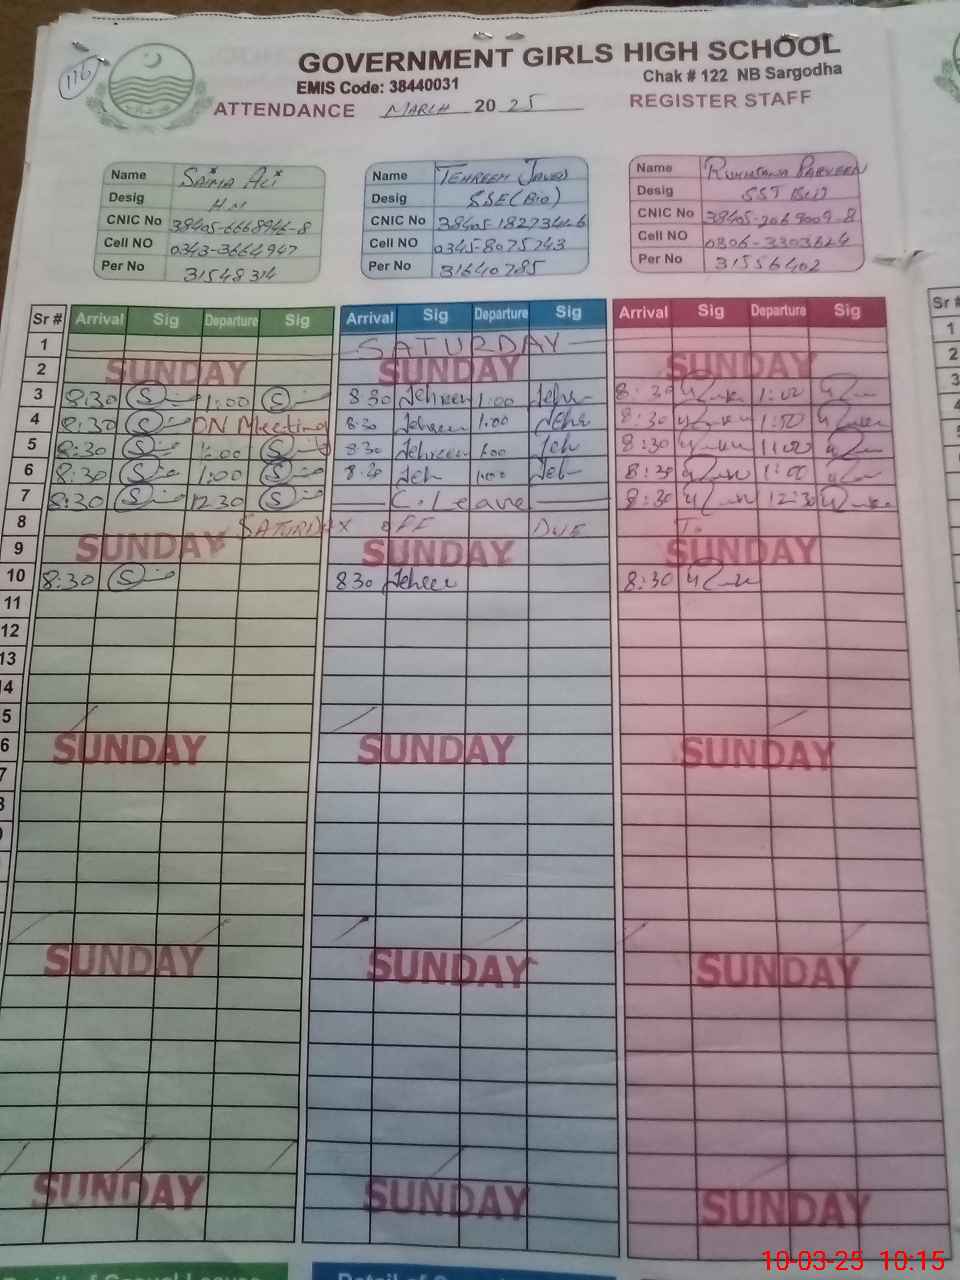 116
GOVERNMENT GIRLS HIGH SCHOOL
EMIS Code: 38440031
Chak # 122 NB Sargodha
ATTENDANCE MARCH 2025 REGISTER STAFF
Name Saima Ali
Desig H.M
CNIC No 38405-6668946-8
Cell NO 0343-3664947
Per No 31548314
Name Tehreem Javed
Desig SSE(Bio)
CNIC No
Cell NO 0345-8075743
Per No 31640785
Name Rukhsana Parveen
Desig SST
CNIC No
Cell NO
Per No 31556402
Sr # Arrival Sig Departure Sig Arrival Sig Departure Sig Arrival Sig Departure Sig Sr #
1 SATURDAY 1
2 SUNDAY SUNDAY SUNDAY 2
3 8:30 S 1:00 S 8:30 Tehreem 1:00 Tehre 8:30 1:00 3
4 8:30 S ON Meeting 8:30 Tehreem 1:00 Tehre 8:30 1:00
5 8:30 S 1:00 S 8:30 Tehreem 1:00 Teh 8:30 1:00
6 8:30 S 1:00 S 8:30 Teh 1:00 Teh 8:30 1:00
7 8:30 S 12:30 S C. Leave 8:30 12:30
8 SATURDAY OFF DUE To
9 SUNDAY SUNDAY SUNDAY
10 8:30 S 8:30 Tehreem 8:30
11
12
13
14
5
6 SUNDAY SUNDAY SUNDAY
7
SUNDAY SUNDAY SUNDAY
SUNDAY SUNDAY SUNDAY
10-03-25 10:15